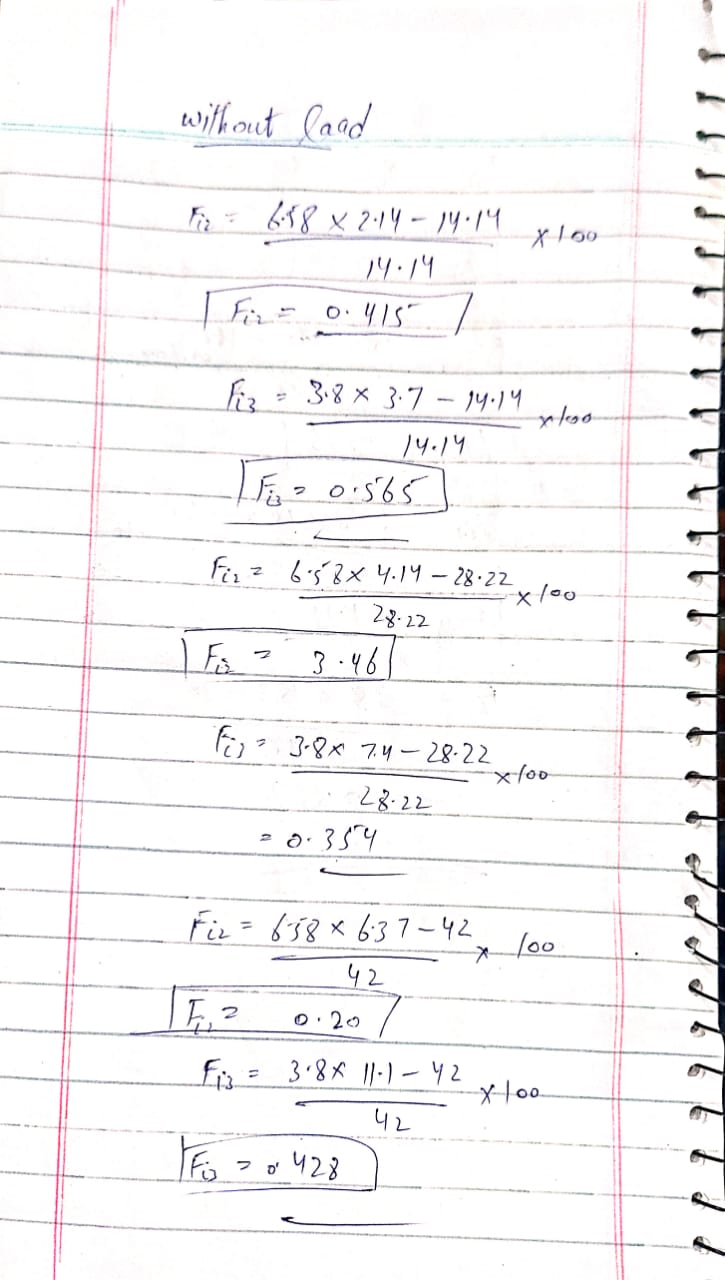 without load
Fi2 = 6.58 × 2.14 – 14.14 × 100
14.14
Fi2 = 0.415
Fi3 = 3.8 × 3.7 – 14.14 × 100
14.14
Fi3 = 0.565
Fi2 = 6.58 × 4.14 – 28.22 × 100
28.22
Fi2 = 3.46
Fi3 = 3.8 × 7.4 – 28.22 × 100
28.22
= 0.354
Fi2 = 6.58 × 6.37 – 42 × 100
42
Fi2 = 0.20
Fi3 = 3.8 × 11.1 – 42 × 100
42
Fi3 = 0.428